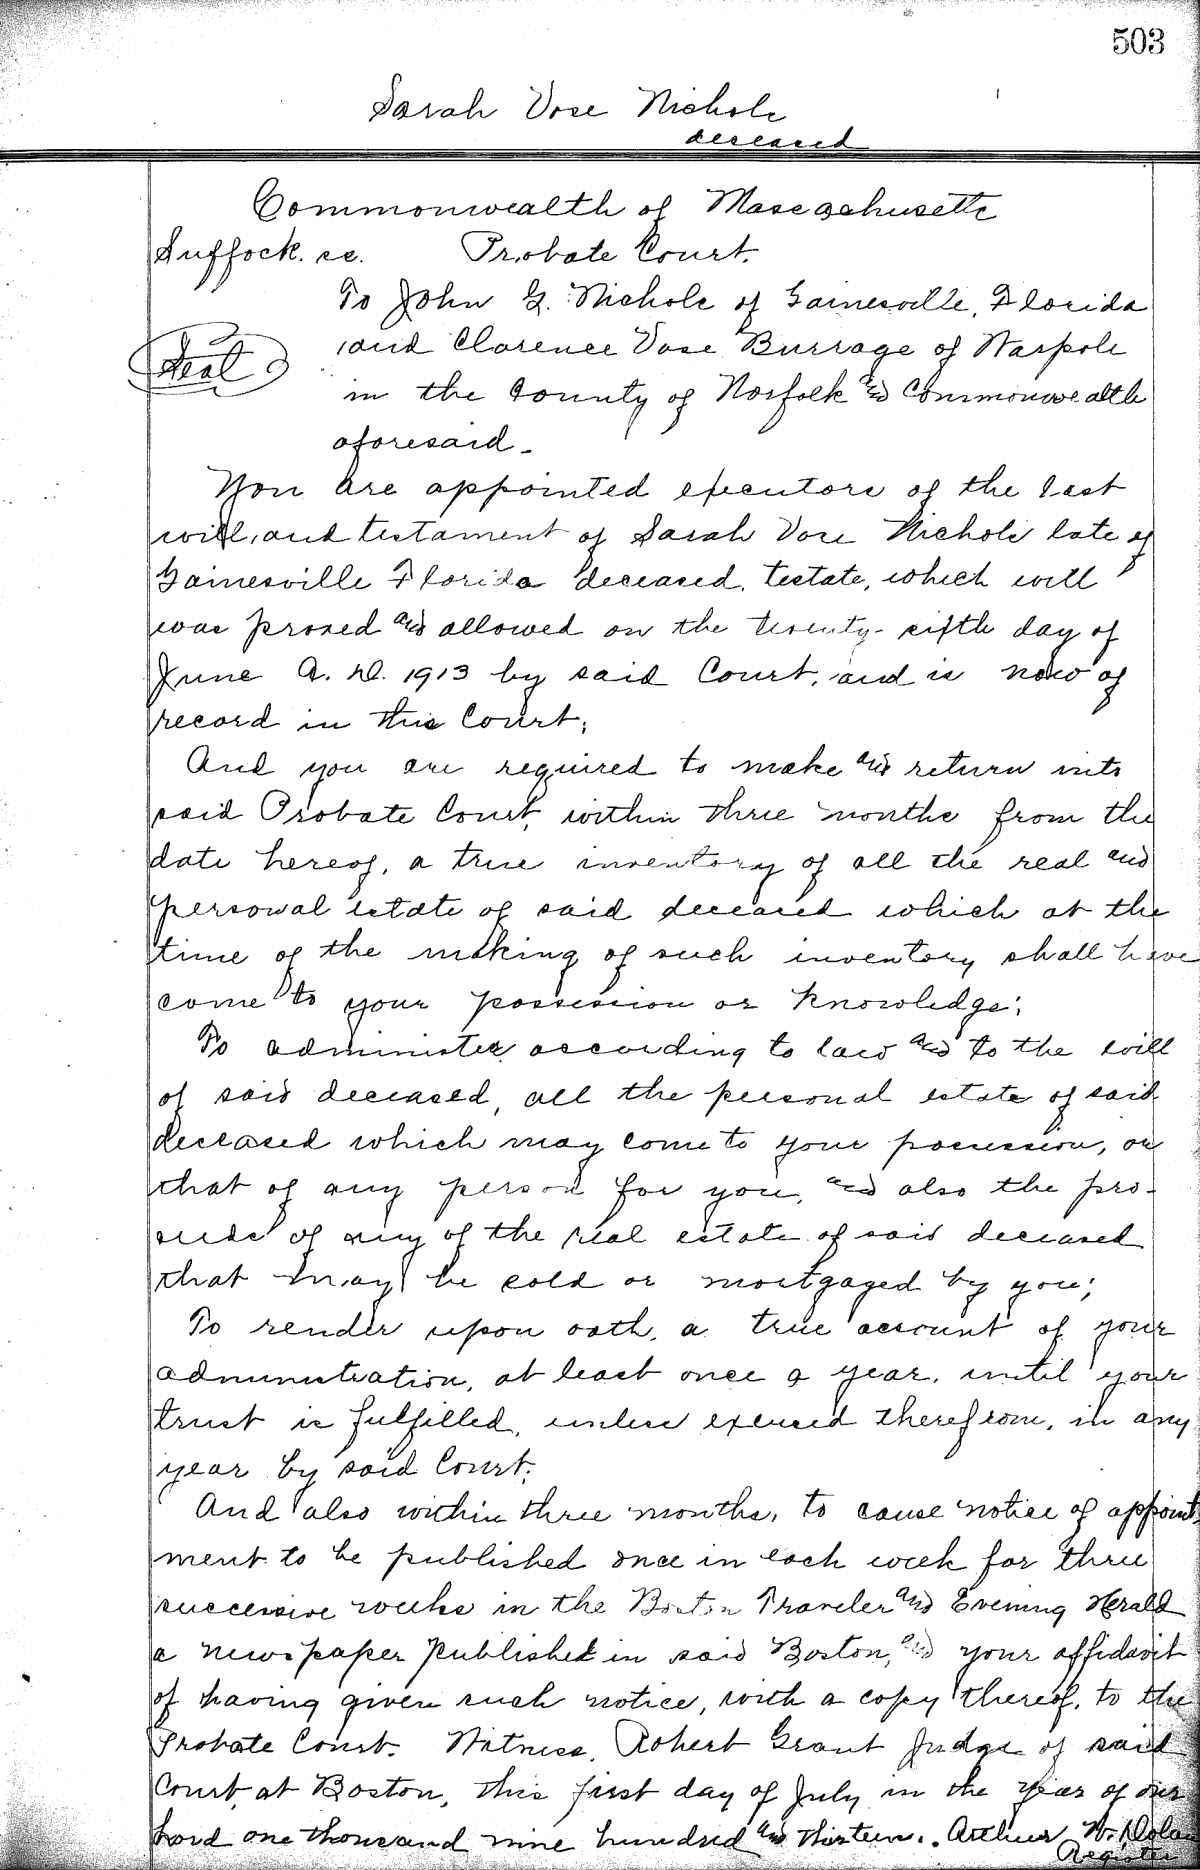 503
Sarah Vose Nichols
deceased
Commonwealth of Massachusetts
Suffock. ss. Probate Court.
To John G. Nichols of Gainesville, Florida
and Clarence Vose Burrage of Warpole
in the County of Norfolk and Commonwealth
aforesaid.
Seal
You are appointed executors of the last
will, and testament of Sarah Vose Nichols late of
Gainesville Florida deceased, testate, which will
was proved and allowed on the twenty-sixth day of
June A. D. 1913 by said Court, and is now of
record in this Court;
And you are required to make and return into
said Probate Court, within three months from the
date hereof, a true inventory of all the real and
personal estate of said deceased which at the
time of the making of such inventory shall have
come to your possession or knowledge;
To administer according to law and to the will
of said deceased, all the personal estate of said
deceased which may come to your possession, or
that of any person for you, and also the pro-
ceeds of any of the real estate of said deceased
that may be sold or mortgaged by you;
To render upon oath, a true account of your
administration, at least once a year, until your
trust is fulfilled, unless excused therefrom, in any
year by said Court;
And also within three months, to cause notice of appoint
ment to be published once in each week for three
successive weeks in the Boston Traveler and Evening Herald
a newspaper published in said Boston, and your affidavit
of having given such notice, with a copy thereof, to the
Probate Court. Witness, Robert Grant Judge of said
Court, at Boston, this first day of July in the year of our
Lord one thousand nine hundred and thirteen. Arthur W. Dolan
Register